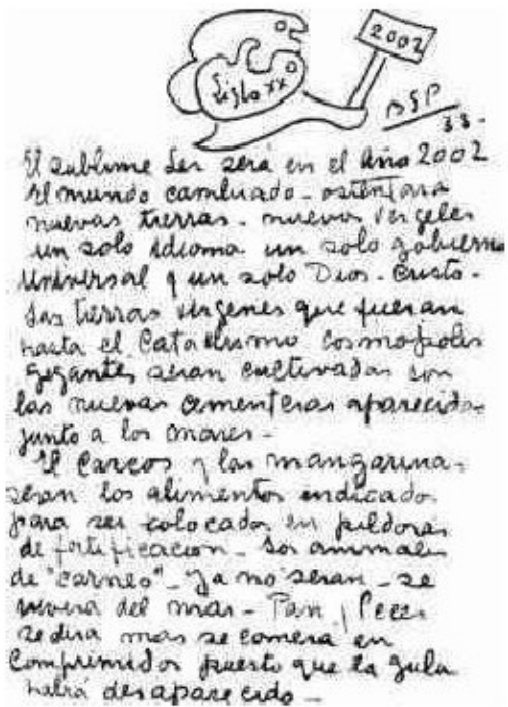 2002
Siglo XX
BSP
33-
El sublime Ser será en el Año 2002
El mundo cambiado - ostentara
nuevas tierras - nuevos vergeles
un solo idioma un solo gobierno
Universal y un solo Dios - Cristo -
Las tierras vírgenes que fueran
hasta el Cataclismo cosmopolis
gigantes seran cultivadas con
las nuevas cementeras aparecidas
junto a los mares -
El Carcos y las mangarinas
seran los alimentos indicados
para ser colocados en pildoras
de fortificacion - Los animales
de "carneo" - ya no seran - se
vivira del mar - Pan y Peces
se dira mas se comera en
Comprimidos puesto que la gula
habrá desaparecido -